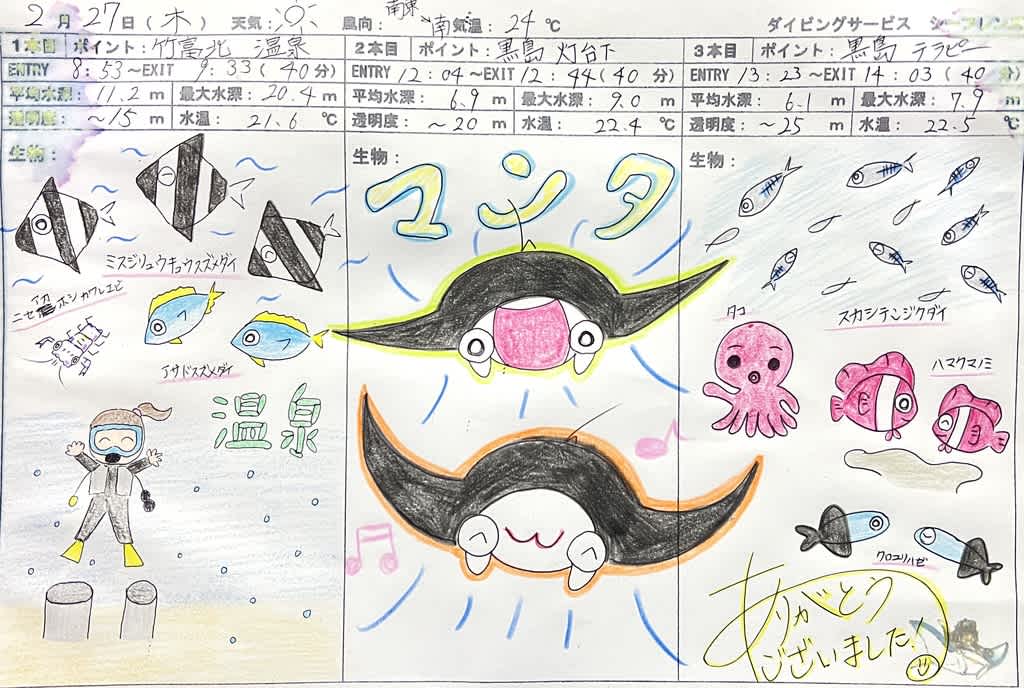 2月27日(木) 天気: 風向: 南東 南 気温: 24℃ ダイビングサービス シーフレンズ
1本目 ポイント: 竹富北 温泉
ENTRY 8:53~EXIT 9:33(40分)
平均水深: 11.2 m 最大水深: 20.4 m
透明度: ~15 m 水温: 21.6 ℃
生物:
ミスジリュウキュウスズメダイ
ニセアカホシカクレエビ
アサドスズメダイ
温泉
2本目 ポイント: 黒島 灯台下
ENTRY 12:04~EXIT 12:44(40分)
平均水深: 6.9 m 最大水深: 9.0 m
透明度: ~20 m 水温: 22.4 ℃
生物:
マンタ
3本目 ポイント: 黒島 テラピー
ENTRY 13:23~EXIT 14:03(40分)
平均水深: 6.1 m 最大水深: 7.9 m
透明度: ~25 m 水温: 22.5 ℃
生物:
スカシテンジクダイ
タコ
ハマクマノミ
クロユリハゼ
ありがとう
ございました!